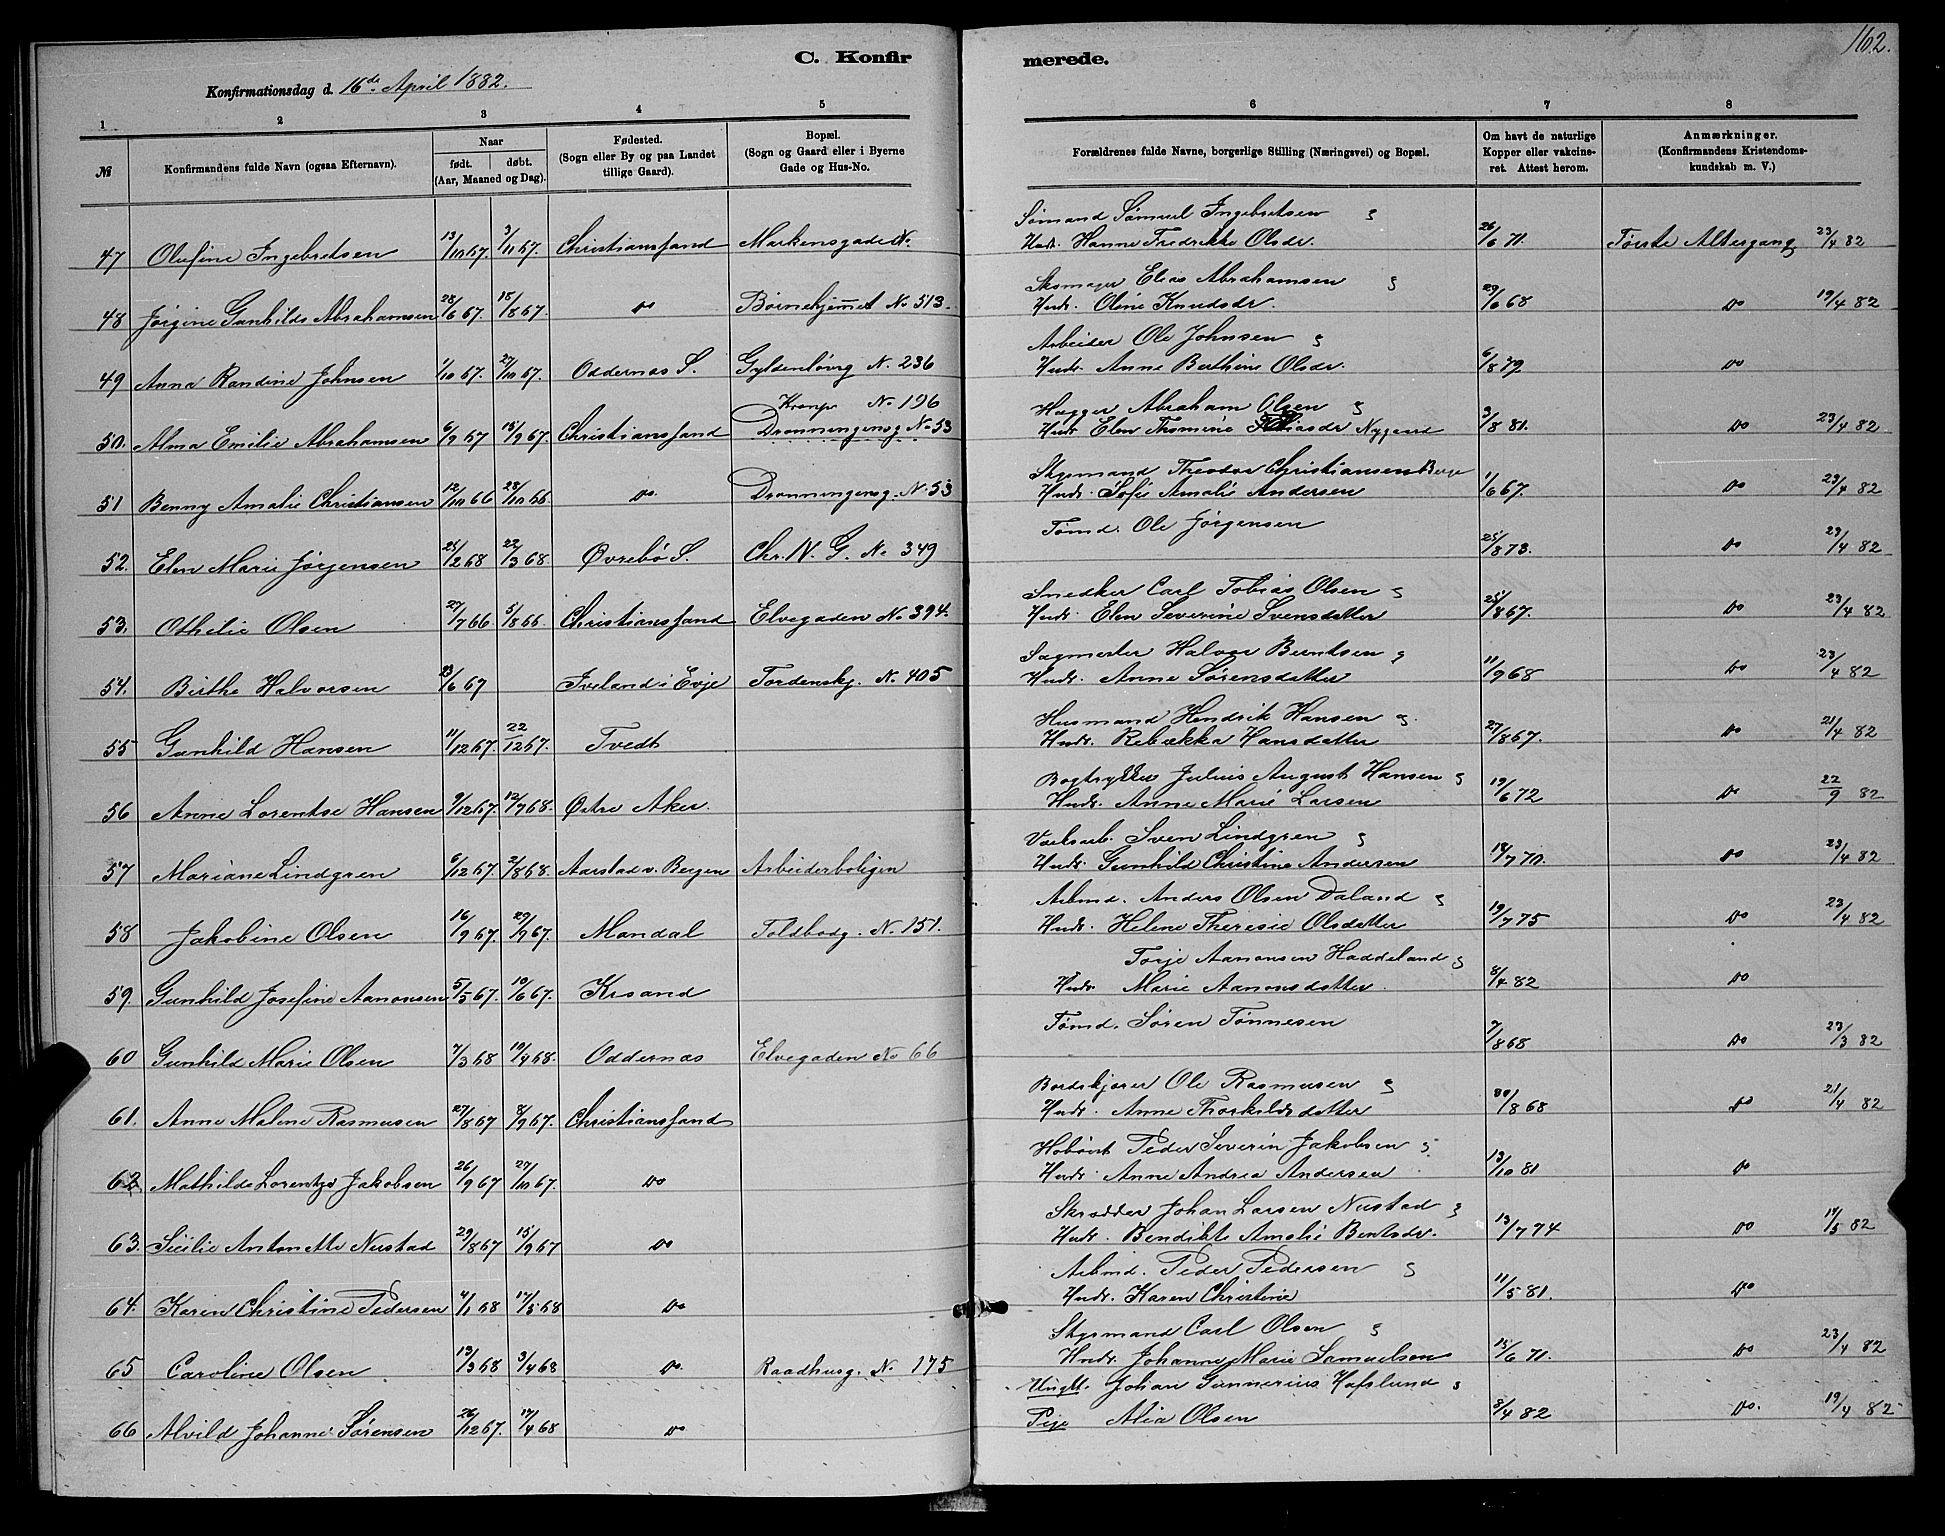 162.
C. Konfirmerede.
Konfirmationsdag d. 16de April 1882.
1 2 3 4 5 6 7 8
№ Konfirmandens fulde Navn (ogsaa Efternavn). Naar født. døbt. (Aar, Maaned og Dag). Fødested. (Sogn eller By og paa Landet tillige Gaard). Bopæl. (Sogn og Gaard eller i Byerne Gade og Hus-No. Forældrenes fulde Navne, borgerlige Stilling (Næringsvei) og Bopæl. Om havt de naturlige Kopper eller vakcineret. Attest herom. Anmærkninger. (Konfirmandens Kristendomskundskab m. V.)
Sømand Samuel Ingebretsen
47 Olufine Ingebretsen 13/10 67. 3/11 67. Christianssand Markensgade N. Hustr. Hanne Fredrikke Olsdr. 26/6 71. Første Altergang 23/4 82
Skomager Elias Abrahamsen
48 Jørgine Gunhilde Abrahamsen 28/6 67. 18/8 67. do Børnehjemmet No 513. Hustr. Oline Knudsdr. 29/6 68 do 19/4 82
Arbeider Ole Johnsen
49 Anna Randine Johnsen 1/10 67. 27/10 67. Oddernes S. Gyldenløvsg N. 236 Hustr. Anne Berthine Olsdr. 6/8 79 do
Kronpr No 196 Abraham Olsen
50. Alma Emilie Abrahamsen 6/9 67 15/9 67. Christianssand Dronningensg No 53 Hustr Elen Thomine Nygaard 3/8 81. do 23/4 82
Styrmand Theodor Christiansen Berge
51 Benny Amalie Christiansen 12/10 66 28/10 66. do. Dronningensg. N. 53 Hustr. Sofie Amalie Andersen 1/6 67. do 23/4 82
Tømd. Ole Jørgensen
52. Elen Marie Jørgensen 25/2 68 22/3 68. Øvrebø S. Chr. N. G. No 349 25/8 73. do 23/4 82
Snedker Carl Tobias Olsen
53. Othilie Olsen 27/7 66 5/8 66. Christianssand Elvegaden No 394. Hustr. Elen Severine Svensdatter 25/8 67. do 23/4 82
Sagmester Halvor Berntsen
54. Birthe Halvorsen 23/6 67 Iveland i Evje Tordenskj. No. 405 Hustr. Anne Sørensdatter 11/9 68 do 23/4 82
Husmand Hendrik Hansen
55 Gunhild Hansen 11/12 67. 22/12 67. Tvedt Hustr. Rebekka Hansdatter 27/8 67. do 21/4 82
Bogtrykker Julius August Hansen
56 Anne Lorentse Hansen 9/12 67. 12/7 68. Østre Aker. Hustr. Anne Marie Larsen 19/6 72 do 22/9 82
Sven Lindgren
57 Mariane Lindgren 6/12 67. 2/8 68. Aarstad v. Bergen Arbeiderboligen Hustr. Gunhild Christine Andersen 18/7 70. do 23/4 82
Arbmd. Anders Olsen Daland
58 Jakobine Olsen 16/9 67. 29/9 67. Mandal Toldbodg. N. 151. Hustr. Helene Theresie Olsdatter 19/7 75 do 23/4 82
Torje Aanonsen Haddeland
59. Gunhild Josefine Aanonsen 5/5 67. 10/6 67. Krsand Hustr Marie Aanonsdatter. 8/4 82 do
Tømd. Søren Tønnesen
60 Gunhild Marie Olsen 7/3 68 19/4 68. Oddernes Elvegaden No 66 7/8 68 do 23/3 82
Bordskjører Ole Rasmusen
61. Anne Malene Rasmusen 27/8 67 8/9 67. Christianssand Hustr. Anne Thorkildsdatter 30/8 68 do 21/4 82
Peder Severin Jakobsen
62 Mathilde Lorentze Jakobsen 26/9 67 27/10 67. do Hustr. Anne Andrea Andersen 13/10 81 do
Skrædder Johan Larsen Nustad
63. Sicilie Antonette Nustad 29/8 67 15/9 67 do Hustr. Bendikte Amalie Bentsdr. 13/7 74 do 14/5 82
Arbmd. Peder Pedersen
64. Karen Christine Pedersen 4/1 68 17/5 68 do Hustr. Karen Christine 11/5 81. do
Styrmand Carl Olsen
65 Caroline Olsen 13/3 68 3/4 68 do. Raadhusg. No. 175 Hustr. Johanne Marie Samuelsen 15/6 71. do 23/4 82
Ungk. Johan Gunnerius Hafslund
66 Alvild Johanne Sørensen 26/12 67. 17/4 68 do Pige Alia Olsen 3/4 82 do. 19/4 82